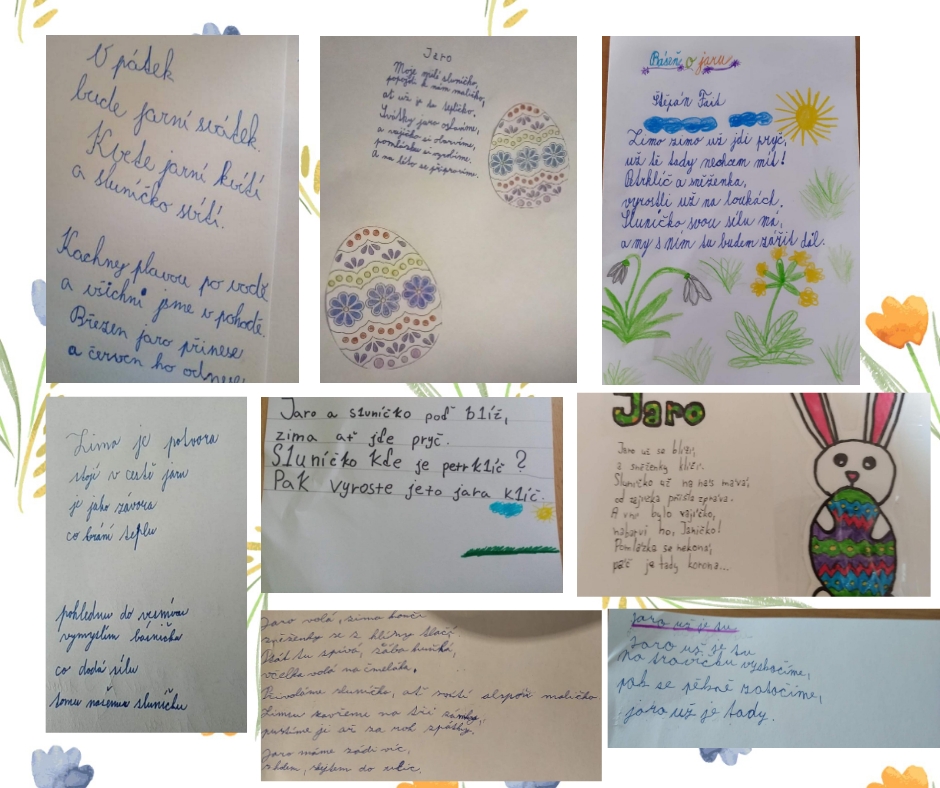 V pátek
bude jarní svátek.
Kvete jarní kvítí
a sluníčko svítí.
Kachny plavou po vodě
a všichni jsme v pohodě.
Březen jaro přinese
a červen ho odnese
Jaro
Moje milé sluníčko,
popojdi k nám maličko,
ať už je tu teplíčko.
Svátky jaro oslavíme,
a vajíčko si obarvíme,
pomlázku si
a na léto se připravíme.
Báseň o jaru
Štěpán Fait
Zimo zimo už jdi pryč,
už tě tady nechcem mít!
Petrklíč a sněženka,
vyrostli už na loukách.
Sluníčko svou sílu má,
a my s ním tu budem zářit dál.
Zima je potvora
stojí v cestě jaru
je jako závora
co brání teplu
pohlédnu do vesmíru
vymyslím básničku
co dodá sílu
tomu našemu sluníčku
Jaro a sluníčko poď blíž,
zima ať jde pryč.
Sluníčko kde je petrklíč?
Pak vyroste jeto jara klíč.
Jaro
Jaro už se blíží,
a sněženky klíží.
Sluníčko už na nás mává,
od zajíčka přišla zpráva.
A vno bylo vajíčko,
nabarvi ho, Janičko!
Pomlázka se nekoná,
páč je tady korona...
Jaro volá, zima končí
sněženky se z hlíny tlačí.
Pták tu zpívá, žába kuňká,
včelka volá na čmeláka.
Přivoláme sluníčko, ať svítí alespoň maličko
Zimu zavřeme na tři zámky,
pustíme je až za rok zpátky.
Jaro máme rádi víc,
do ulic.
Jaro už je tu
Jaro už je tu
na travičku vyskočíme,
pak se pěkně zatočíme,
jaro už je tady.